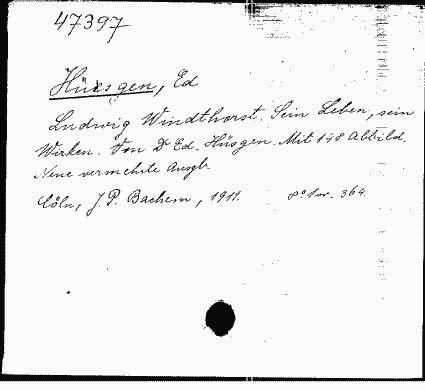 47397
Hüsgen, Ed
Ludwig Windthorst. Sein Leben, sein
Wirken. Von Dr Ed. Hüsgen. Mit 148 Abbild.
Neue vermehrte Ausgbe
Cöln, J. P. Bachem, 1911. 8° 1 w. 364.